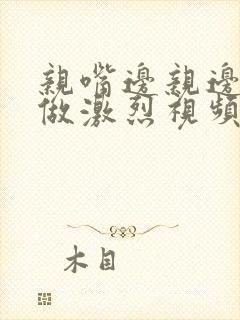 親嘴邊親邊
做激烈視頻
木目